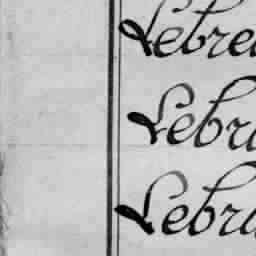 Lebre
Lebr
Lebra